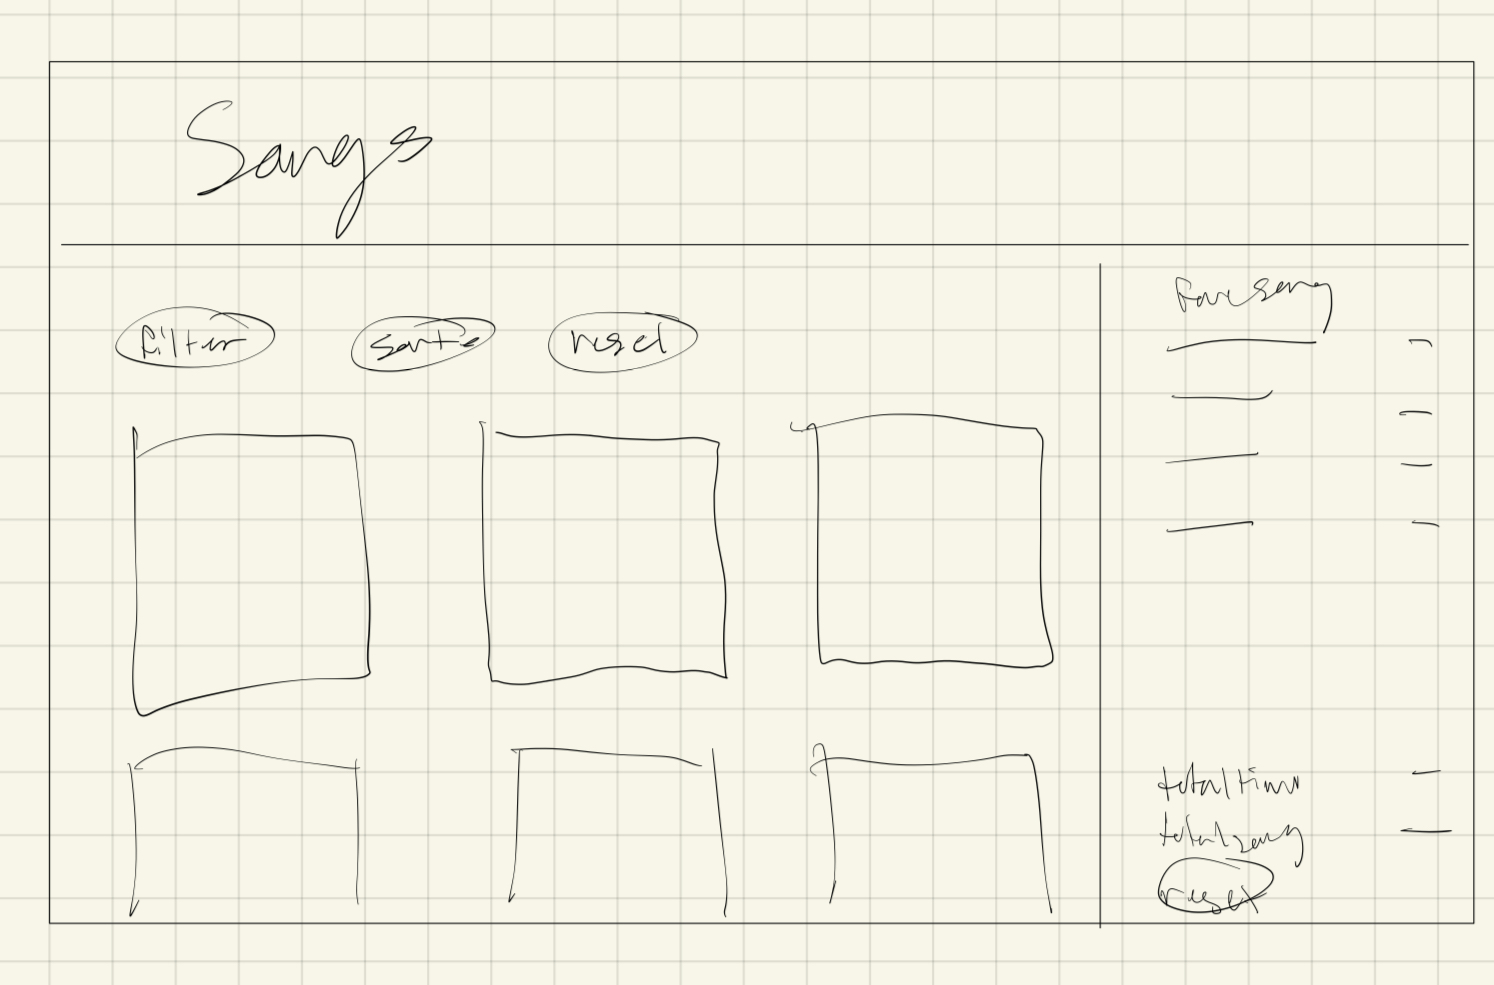 Songs
filter sort reset
Fav song
total time
total song
reset